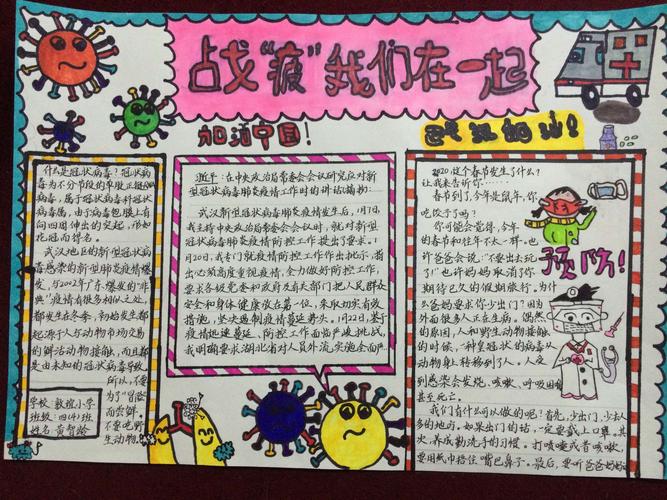 战“疫”我们在一起
加油中国！
什么是冠状病毒？冠状病
毒为不分节段的单股正链
病毒，属于冠状病毒科冠状
病毒属，由于病毒包膜上有
向四周伸出的突起，形如
花冠而得名。
武汉地区的新型冠状病
毒感染的新型肺炎疫情爆
发，与2002年广东爆发的“非
典”疫情有很多相似之处，
都发生在冬季，初始发生都
起源于人与动物市场交易
的鲜活动物接触，而且都
是由未知的冠状病毒导致。
所以，不要
为了“冒险”
而尝鲜，
不要吃野
生动物。
学校：敦煌小学
班级：四(4)班
姓名：黄智龄
近平：在中央政治局常委会会议研究应对新
型冠状病毒肺炎疫情工作时的讲话(摘抄)：
武汉新型冠状病毒肺炎疫情发生后，1月7日，
我主持中央政治局常委会会议时，就对新型
冠状病毒肺炎疫情防控工作提出了要求。1
月20日，我专门就疫情防控工作作出批示，指
出必须高度重视疫情，全力做好防控工作，
要求各级党委和政府及有关部门把人民群众
安全和身体健康放在第一位，采取切实有效
措施，坚决遏制疫情蔓延势头。1月22日，鉴于
疫情迅速蔓延、防控工作面临严峻挑战，
我明确要求湖北省对人员外流实施全面严
2020这个春节发生了什么？
让我来告诉你……
春节到了，今年是鼠年，你
吃饺子了吗？
你可能会觉得，今年
的春节和往年不太一样。也
许爸爸会说：“不要出去玩
了”也许妈妈取消了你
期待已久的假期旅行。为什
么爸妈要求你少出门？因为
外面很多人正在生病。偶然
的原因，人和野生动物接触
的时候，一种冠状的病毒从
动物身上转移到了人。人受
到感染会发烧，咳嗽，呼吸困难
甚至死亡。
我们有什么可以做的呢？首先，少出门，少去人
多的地方。如果出门的话，一定要戴上口罩。其
次，养成勤洗手的习惯。打喷嚏或者咳嗽，
要用纸巾捂住嘴巴鼻子。最后，要听爸爸妈妈
预防！